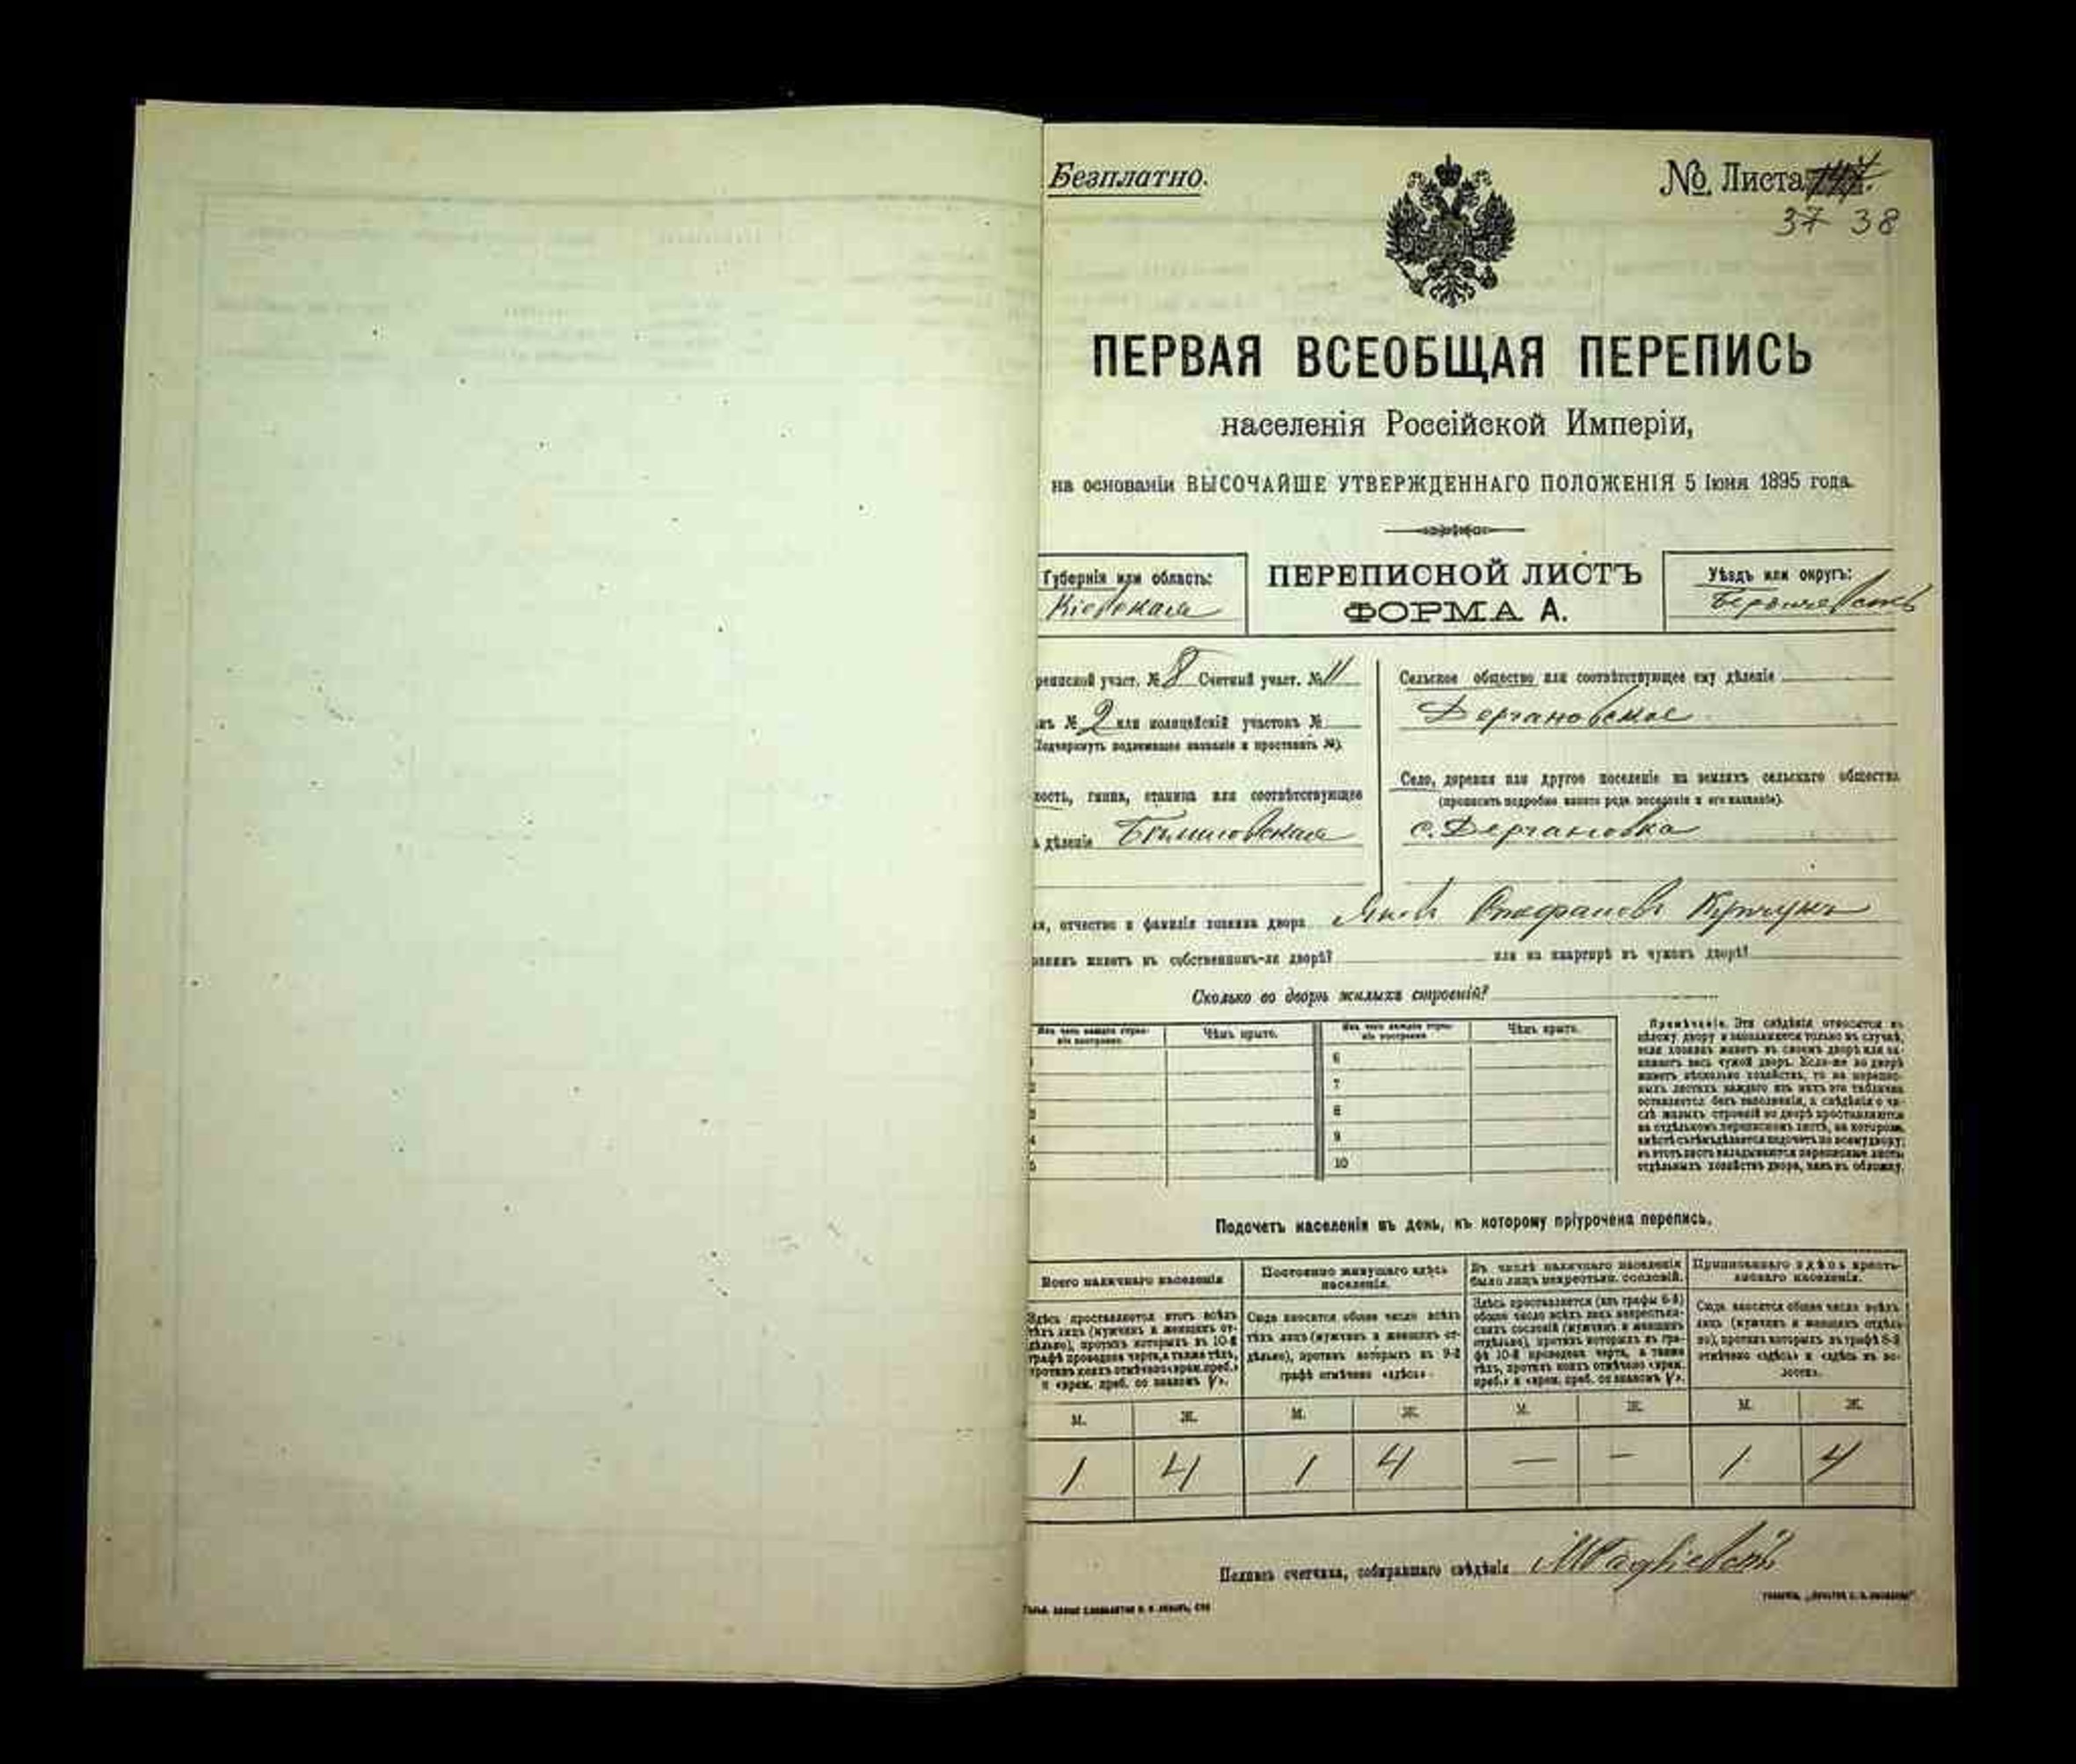 Безплатно.
№ Листа
37 38
ПЕРВАЯ ВСЕОБЩАЯ ПЕРЕПИСЬ
населенія Россійской Имперіи,
на основаніи ВЫСОЧАЙШЕ УТВЕРЖДЕННАГО ПОЛОЖЕНІЯ 5 Іюня 1895 года.
Губернія или область:
Кіевская
ПЕРЕПИСНОЙ ЛИСТЪ
ФОРМА А.
Уѣздъ или округъ:
Бердичевскій
реписной участ. № 8 Счетный участ. № 11
нъ № 2 или полицейскій участокъ №
Подчеркнуть подлежащее названіе и проставить №).
ность, гмина, станица или соотвѣтствующее
дѣленіе
Сельское общество или соотвѣтствующее ему дѣленіе
Дергановское
Село, деревня или другое поселеніе на земляхъ сельскаго общества
(прописать подробно какого рода поселеніе и его названіе).
с. Дергановка
я, отчество и фамилія хозяина двора
озяинъ живетъ въ собственномъ-ли дворѣ? или на квартирѣ въ чужомъ дворѣ?
Сколько во дворѣ жилыхъ строеній?
Изъ чего каждое строе-
ніе построено.
Чѣмъ крыто.
Изъ чего каждое строе-
ніе построено.
Чѣмъ крыто.
2
3
4
5
6
7
8
9
10
Примѣчаніе. Эти свѣдѣнія относятся къ
цѣлому двору и записываются только въ случаѣ,
если хозяинъ живетъ въ своемъ дворѣ или за-
нимаетъ весь чужой дворъ. Если-же во дворѣ
живетъ нѣсколько хозяйствъ, то на перепис-
ныхъ листахъ каждаго изъ нихъ эта табличка
оставляется безъ заполненія, а свѣдѣнія о чи-
слѣ жилыхъ строеній во дворѣ проставляются
на отдѣльномъ переписномъ листѣ, на которомъ,
вмѣстѣ съ тѣмъ дѣлается подсчетъ по всему двору;
въ этотъ листъ вкладываются переписные листы
отдѣльныхъ хозяйствъ двора, какъ въ обложку.
Подсчетъ населенія въ день, къ которому пріурочена перепись.
Всего наличнаго населенія
Здѣсь проставляется итогъ всѣхъ
тѣхъ лицъ (мужчинъ и женщинъ от-
дѣльно), противъ которыхъ въ 10-й
графѣ проведена черта, а также тѣхъ,
противъ коихъ отмѣчено «врем. преб.»
и «врем. преб. со знакомъ V».
Постоянно живущаго здѣсь
населенія.
Сюда вносится общее число всѣхъ
тѣхъ лицъ (мужчинъ и женщинъ от-
дѣльно), противъ которыхъ въ 9-й
графѣ отмѣчено «здѣсь»
Въ числѣ наличнаго населенія
было лицъ некрестьян. сословій.
Здѣсь проставляется (изъ графы 6-й)
общее число всѣхъ лицъ некрестьян-
скихъ сословій (мужчинъ и женщинъ
отдѣльно), противъ которыхъ въ гра-
фѣ 10-й проведена черта, а также
тѣхъ, противъ коихъ отмѣчено «врем.
преб.» и «врем. преб. со знакомъ V».
Приписаннаго здѣсь кресть-
янскаго населенія.
Сюда вносится общее число всѣхъ
лицъ (мужчинъ и женщинъ отдѣль-
но), противъ которыхъ въ графѣ 8-й
отмѣчено «здѣсь» и «здѣсь въ во-
лости».
М. Ж. М. Ж. М. Ж. М. Ж.
1 4 1 4 — — 1 4
Подпись счетчика, собиравшаго свѣдѣнія